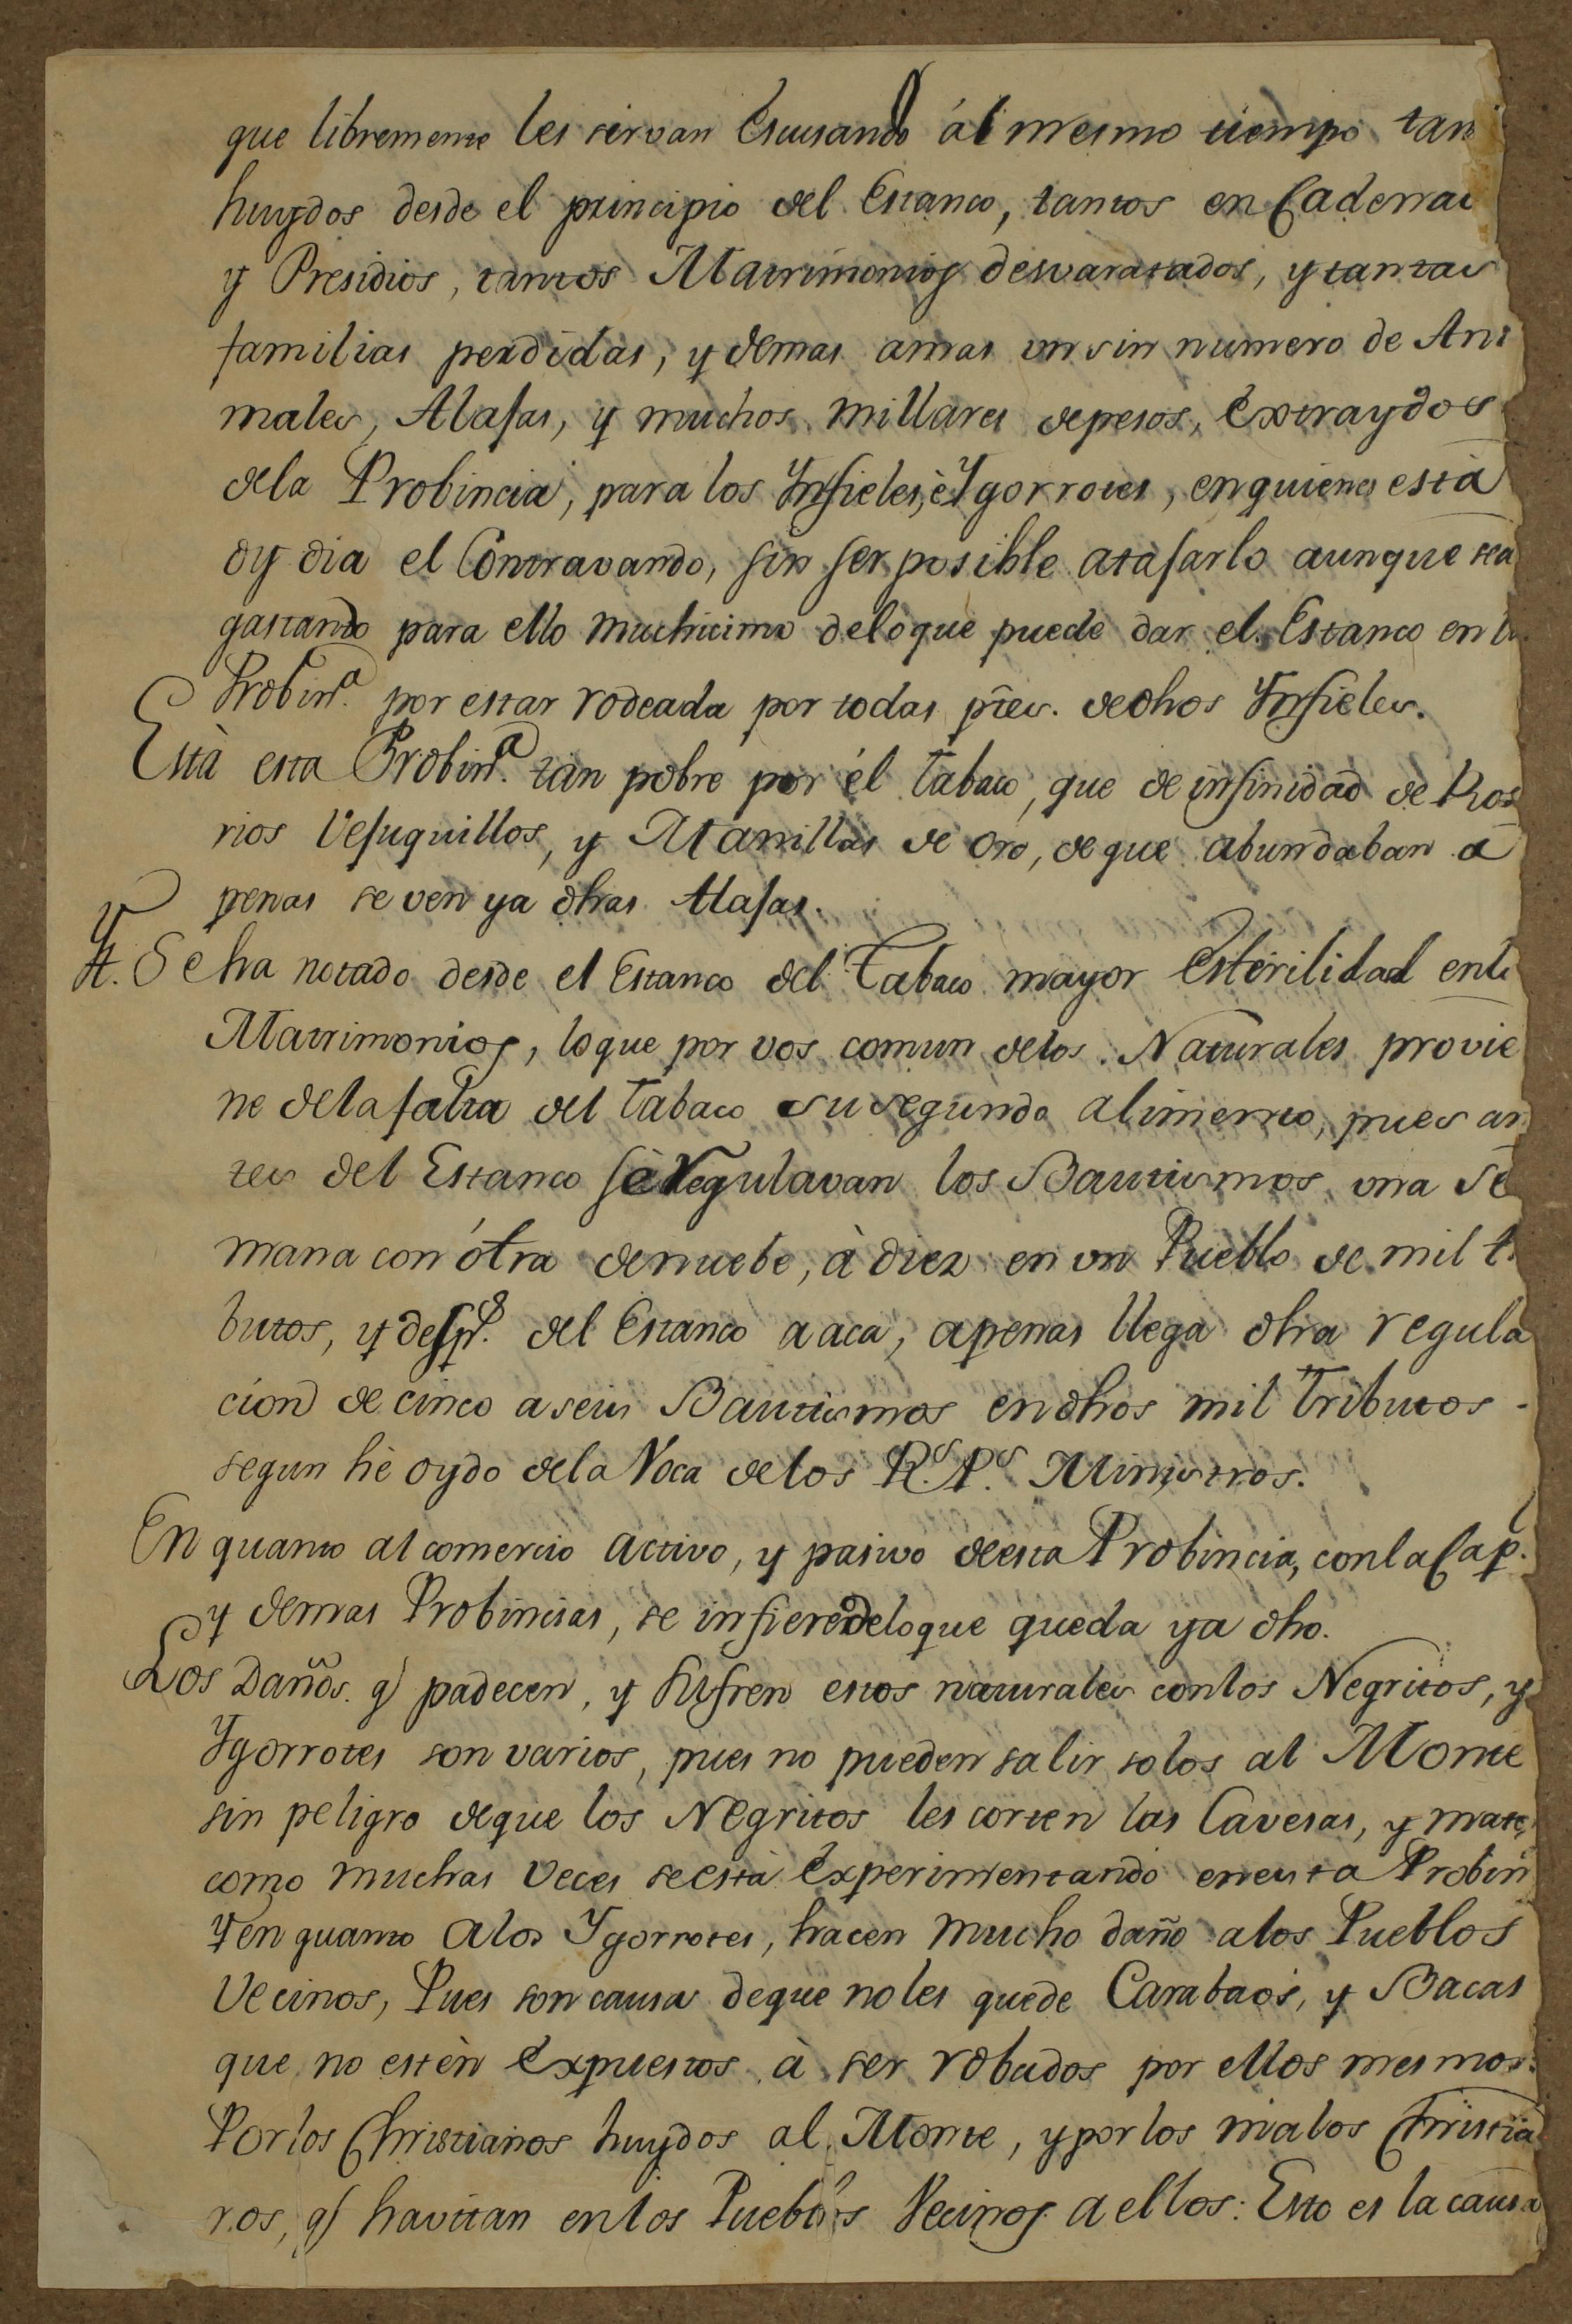 que libremente les sirvan Escusando ál mesmo tiempo tan
huydos desde el principio del Estanco, tantos en Cadenas
y Presidios, tantos Matrimonios desvaratados, y tantas
familias perdidas, y demas amas un sin numero de Ani
males, Alajas, y muchos millares de pesos, Extraydos
dela Probincia, para los Ynfieles, è Ygorrotes, en quienes està
oy dia el Contravando, sin ser posible atajarlo aunque sea
gastando para ello muchicimo delo que puede dar el Estanco en
Probinª. por estar rodeada por todas ptes. de dhos Ynfieles.
Està esta Probinª. tan pobre por él tabaco, que de infinidad de Rosa
rios Vejuquillos, y Manillas de oro, de que abundaban a
penas se ven ya dhas Alajas.
Yt. Se ha notado desde el Estanco del Tabaco mayor Esterilidad en
Matrimonios, lo que por vos comun delos Naturales provie
ne dela falta del tabaco su segundo alimento, pues an
tes del Estanco se Regulavan los Bautismos una se
mana con ótra de nuebe, à diez en un Pueblo de mil
butos, y desps. del Estanco a aca, apenas llega dha regula
cion de cinco a seis Bautismos en dhos mil tributos
segun hè oydo dela Voca de los Rs. Ps. Ministros.
En quanto al comercio activo, y pasivo de esta Probincia, con la Capl.
y demas Probincias, se infiere delo que queda ya dho.
Los Daños. q̃ padecen, y sufren estos naturales con los Negritos, y
Ygorrotes son varios, pues no pueden salir solos al Monte
sin peligro de que los Negritos les corten las Cavesas, y maten
como muchas Veces se està Experimentando en esta Probin
Y en quanto a los Ygorrotes, hacen mucho daño a los Pueblos
Vecinos, Pues son causa de que no les quede Carabaos, y Bacas
que no estèn Expuestos à ser robados por ellos mesmos
Por los Christianos huydos al Monte, y por los malos Christia
nos, q̃ havitan en los Pueblos Vecinos a ellos: Esto es la causa